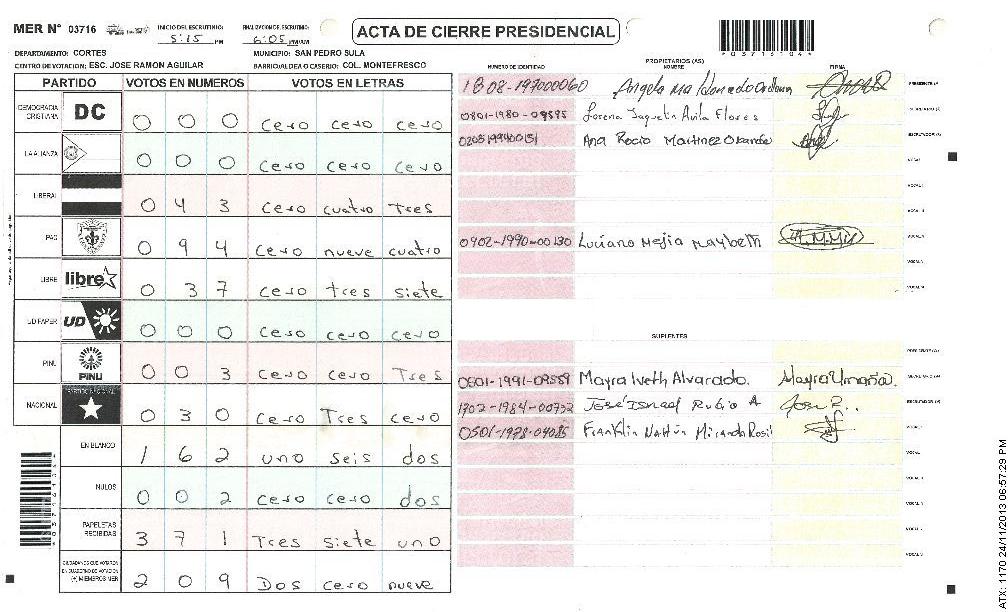 MER Nº 03716 INICIO DEL ESCRUTINIO: 5:15 PM FINALIZACION DEL ESCRUTINIO: 6:05 PM/AM ACTA DE CIERRE PRESIDENCIAL
DEPARTAMENTO: CORTES MUNICIPIO: SAN PEDRO SULA
CENTRO DE VOTACION: ESC. JOSE RAMON AGUILAR BARRIO/ALDEA O CASERIO: COL. MONTEFRESCO
PARTIDO VOTOS EN NUMEROS VOTOS EN LETRAS
DEMOCRACIA CRISTIANA DC 0 0 0 cero cero cero
LA ALIANZA 0 0 0 cero cero cero
LIBERAL 0 4 3 cero cuatro Tres
PAC 0 9 4 cero nueve cuatro
LIBRE libre 0 3 7 cero tres siete
UD FAPER UD 0 0 0 cero cero cero
PINU PINU 0 0 3 cero cero Tres
NACIONAL 0 3 0 cero Tres cero
EN BLANCO 1 6 2 uno seis dos
NULOS 0 0 2 cero cero dos
PAPELETAS RECIBIDAS 3 7 1 Tres siete uno
CIUDADANOS QUE VOTARON EN CUADERNO DE VOTACION (+) MIEMBROS MER 2 0 9 Dos cero nueve
PROPIETARIOS (AS)
NUMERO DE IDENTIDAD NOMBRE FIRMA
1808-197000060 Angela Maldonado Orellana PRESIDENTE (A)
0801-1980-09595 Lorena Jaqueta Avila Flores SECRETARIO (A)
0205199400151 Ana Rocio Martinez ESCRUTADOR (A)
VOCAL I
0902-1990-00130 Luciano Mejia Maybeth
SUPLENTES
PRESIDENTE (A)
0501-1991-09559 Mayra Iveth Alvarado. Mayra Umaña. SECRETARIO (A)
1702-1984-00732 José Ismael Rubio A Jose R.. ESCRUTADOR (A)
0501-1978-04085 Franklin Miranda VOCAL I
ATX: 1170 24/11/2013 06:57:29 PM